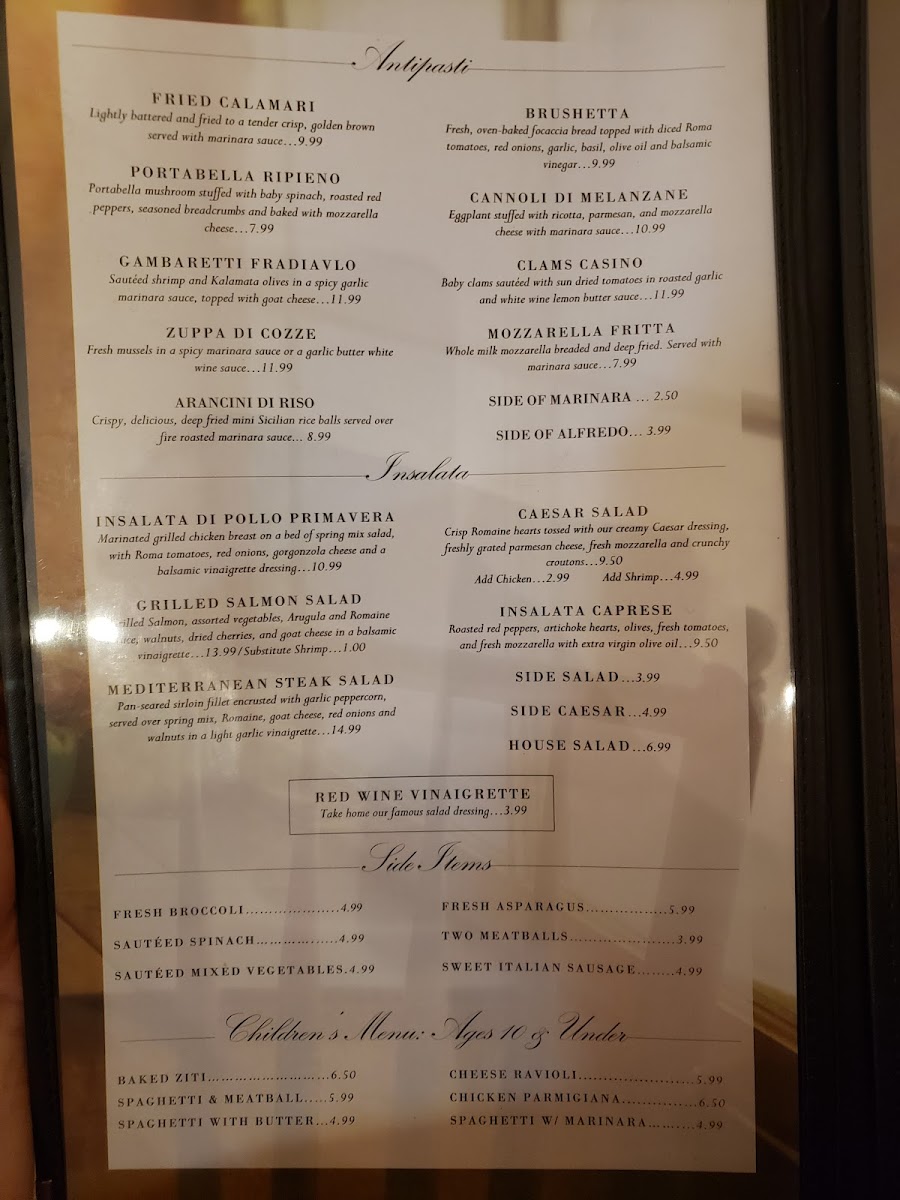 Antipasti
FRIED CALAMARI
Lightly battered and fried to a tender crisp, golden brown
served with marinara sauce...9.99
PORTABELLA RIPIENO
Portabella mushroom stuffed with baby spinach, roasted red
peppers, seasoned breadcrumbs and baked with mozzarella
cheese...7.99
GAMBARETTI FRADIAVLO
Sautéed shrimp and Kalamata olives in a spicy garlic
marinara sauce, topped with goat cheese...11.99
ZUPPA DI COZZE
Fresh mussels in a spicy marinara sauce or a garlic butter white
wine sauce...11.99
ARANCINI DI RISO
Crispy, delicious, deep fried mini Sicilian rice balls served over
fire roasted marinara sauce... 8.99
BRUSHETTA
Fresh, oven-baked focaccia bread topped with diced Roma
tomatoes, red onions, garlic, basil, olive oil and balsamic
vinegar...9.99
CANNOLI DI MELANZANE
Eggplant stuffed with ricotta, parmesan, and mozzarella
cheese with marinara sauce...10.99
CLAMS CASINO
Baby clams sautéed with sun dried tomatoes in roasted garlic
and white wine lemon butter sauce...11.99
MOZZARELLA FRITTA
Whole milk mozzarella breaded and deep fried. Served with
marinara sauce...7.99
SIDE OF MARINARA ... 2.50
SIDE OF ALFREDO... 3.99
Insalata
INSALATA DI POLLO PRIMAVERA
Marinated grilled chicken breast on a bed of spring mix salad,
with Roma tomatoes, red onions, gorgonzola cheese and a
balsamic vinaigrette dressing...10.99
GRILLED SALMON SALAD
Salmon, assorted vegetables, Arugula and Romaine
walnuts, dried cherries, and goat cheese in a balsamic
vinaigrette...13.99/Substitute Shrimp...1.00
MEDITERRANEAN STEAK SALAD
Pan-seared sirloin fillet encrusted with garlic peppercorn,
served over spring mix, Romaine, goat cheese, red onions and
walnuts in a light garlic vinaigrette...14.99
CAESAR SALAD
Crisp Romaine hearts tossed with our creamy Caesar dressing,
freshly grated parmesan cheese, fresh mozzarella and crunchy
croutons...9.50
Add Chicken...2.99 Add Shrimp...4.99
INSALATA CAPRESE
Roasted red peppers, artichoke hearts, olives, fresh tomatoes,
and fresh mozzarella with extra virgin olive oil...9.50
SIDE SALAD...3.99
SIDE CAESAR...4.99
HOUSE SALAD...6.99
RED WINE VINAIGRETTE
Take home our famous salad dressing...3.99
Side Items
FRESH BROCCOLI....................4.99
SAUTÉED SPINACH..................4.99
SAUTÉED MIXED VEGETABLES.4.99
FRESH ASPARAGUS.................5.99
TWO MEATBALLS......................3.99
SWEET ITALIAN SAUSAGE........4.99
Children's Menu: Ages 10 & Under
BAKED ZITI...........................6.50
SPAGHETTI & MEATBALL.....5.99
SPAGHETTI WITH BUTTER...4.99
CHEESE RAVIOLI........................5.99
CHICKEN PARMIGIANA...............6.50
SPAGHETTI W/ MARINARA.........4.99